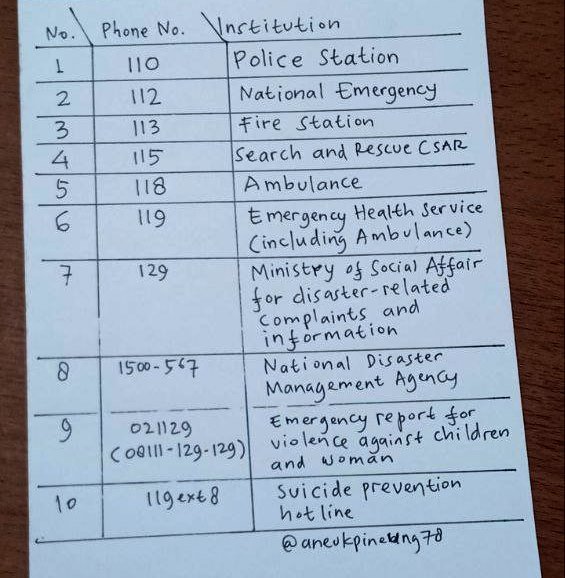 No. Phone No. Institution
1 110 Police Station
2 112 National Emergency
3 113 Fire Station
4 115 Search and Rescue CSAR
5 118 Ambulance
6 119 Emergency Health Service
(including Ambulance)
7 129 Ministry of Social Affair
for disaster-related
complaints and
information
8 1500-567 National Disaster
Management Agency
9 021129 Emergency report for
(08111-129-129) violence against children
and woman
10 119 ext 8 Suicide prevention
hotline